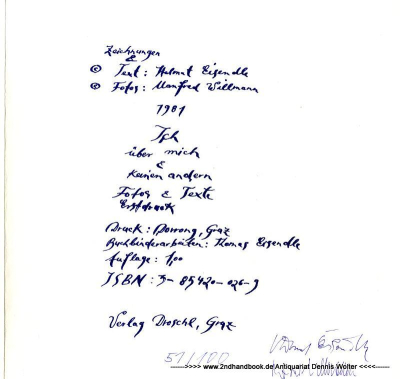 Zeichnungen
&
© Text: Helmut Eisendle
© Fotos: Manfred Willmann
1981
Ich
über mich
&
keinen andern
Fotos & Texte
Erstdruck
Druck: Dorrong, Graz
Buchbinderarbeiten: Thomas Eisendle
Auflage: 100
ISBN: 3-85420-026-9
Verlag Droschl, Graz
51/100
------>>>> www.2ndhandbook.de Antiquariat Dennis Wolter <<<<------